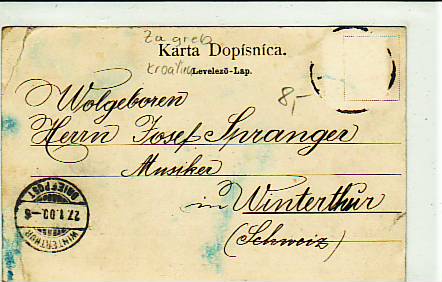 Zagreb
Karta Dopisnica.
Kroatien
(Levelező-Lap.
8,-
Wolgeboren
Herrn Josef Spranger
Musiker
in Winterthur
(Schweiz)
WINTERTHUR
27.I.00.-6
BRIEFPOST